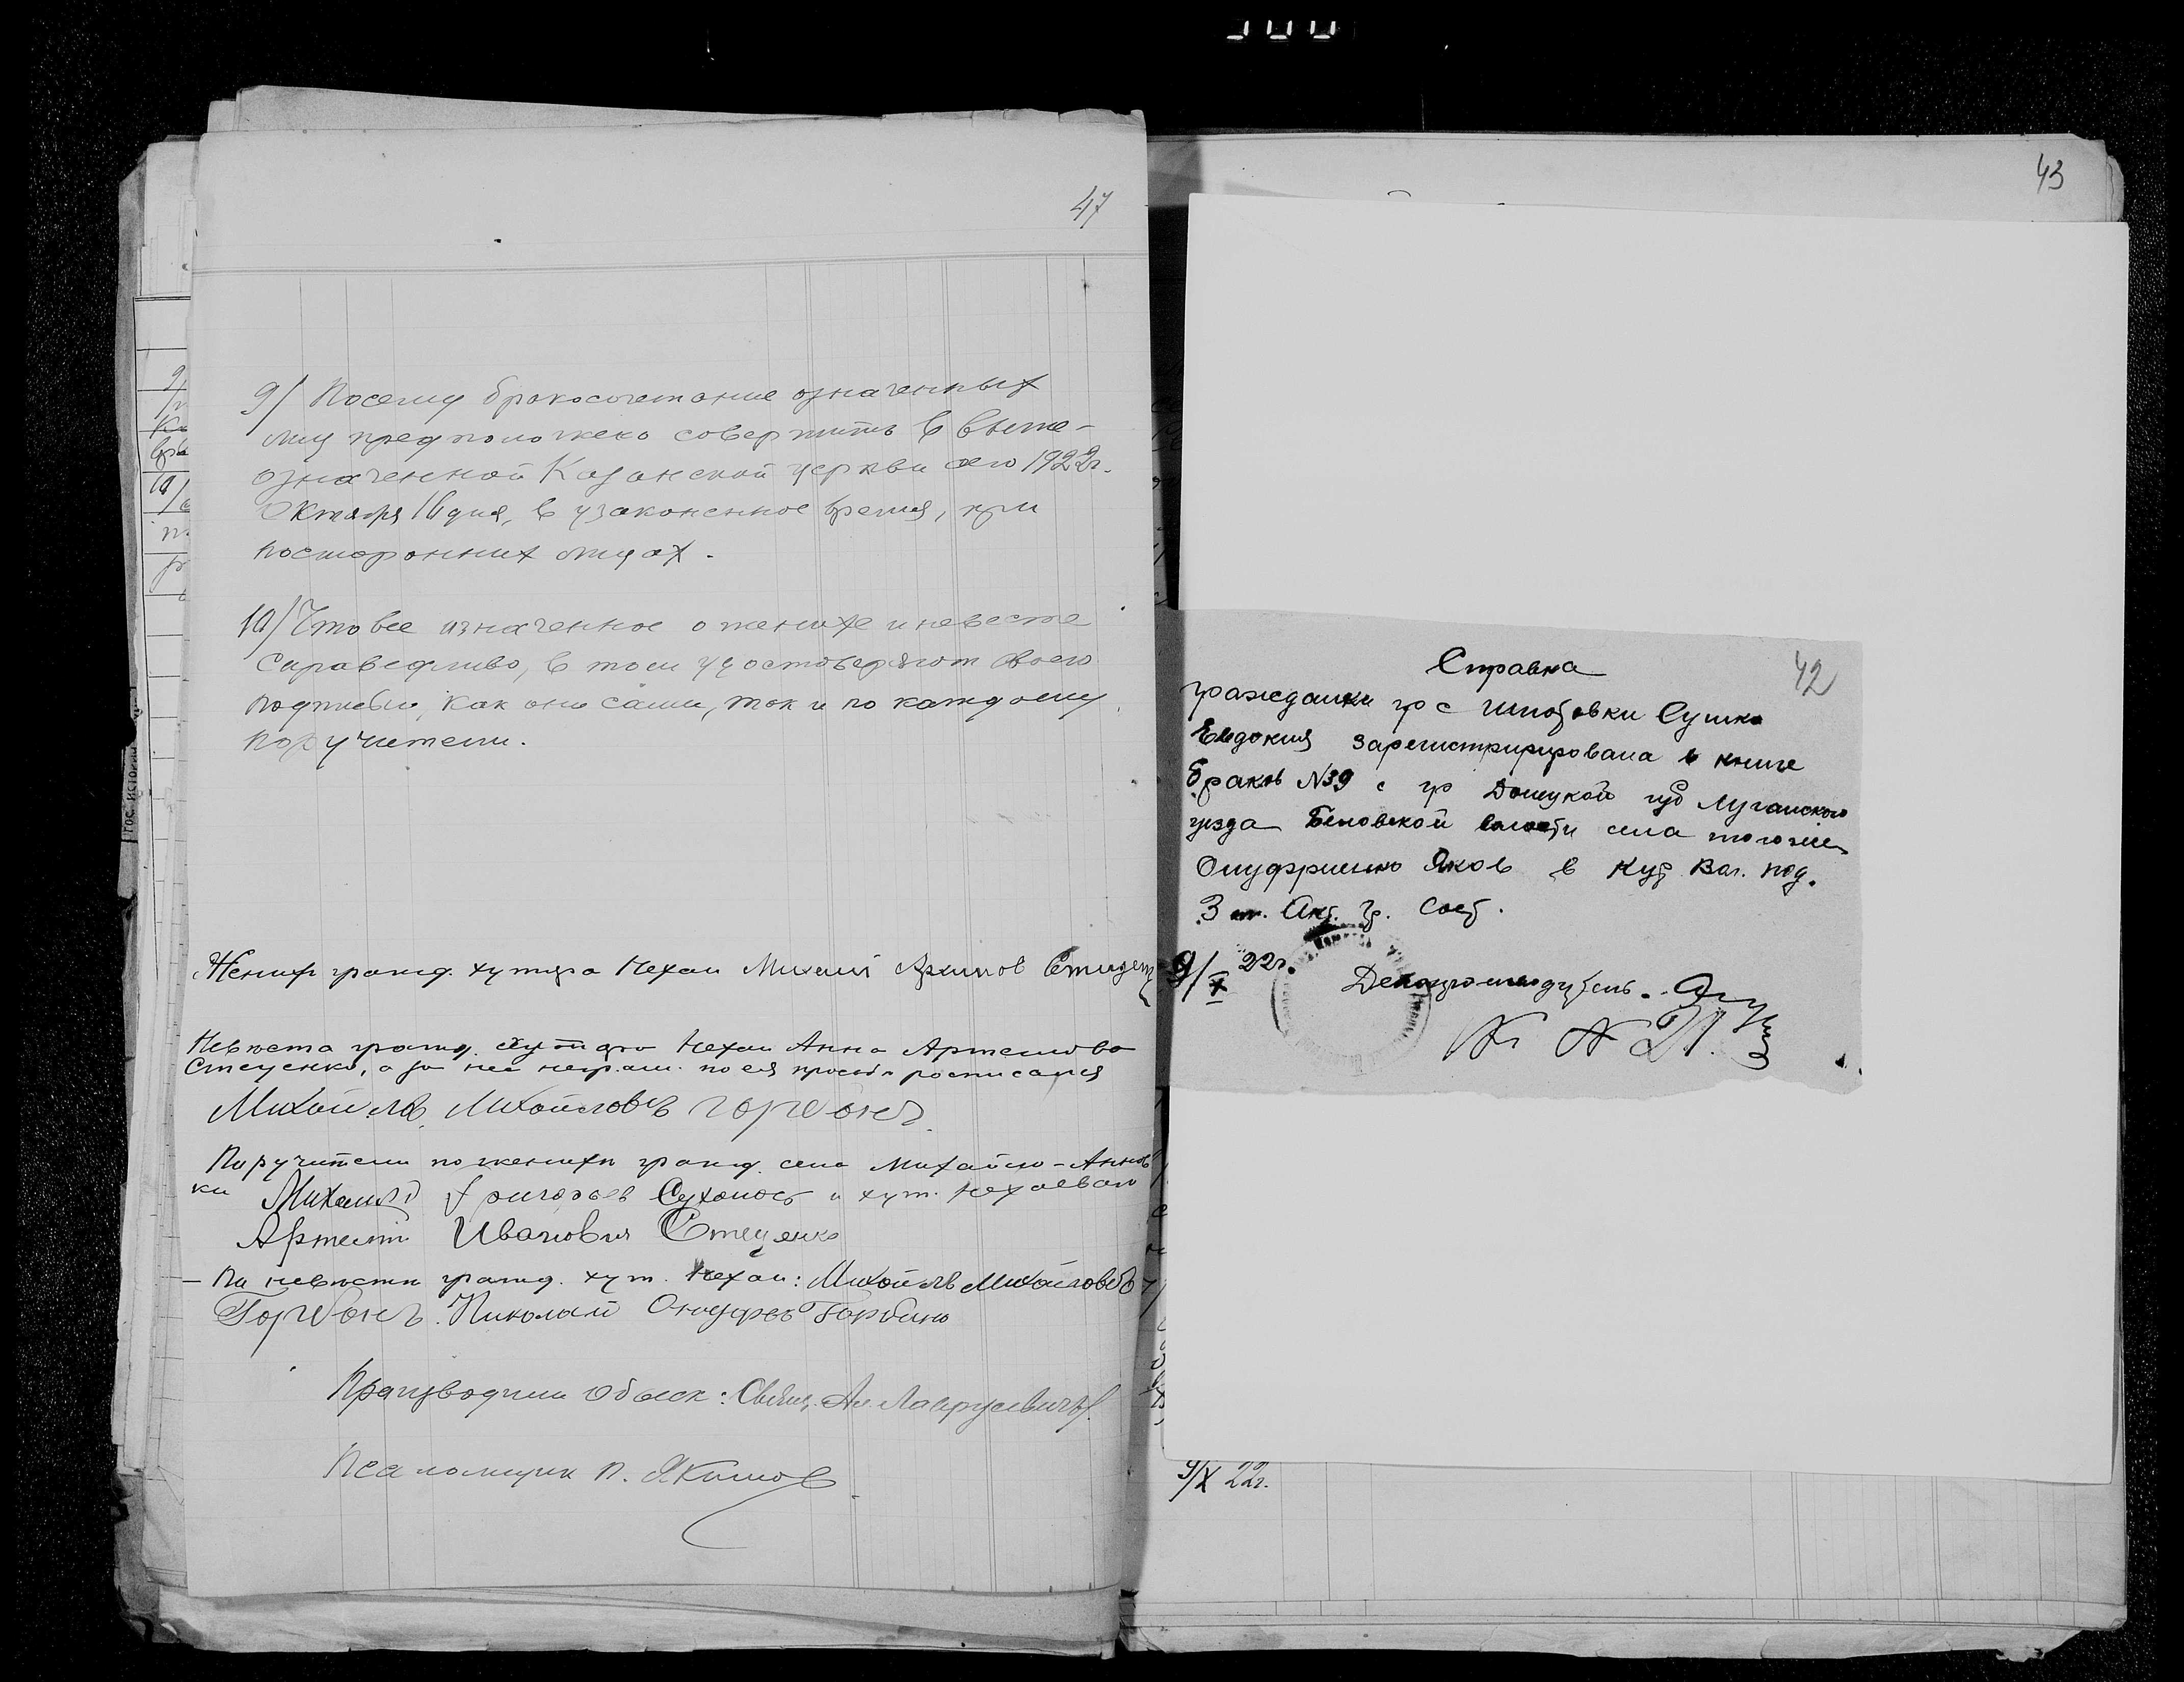 47
9/ Посему бракосочетание означенных
лиц предположено совершить в выше-
означенной Казанской церкви сего 1922г.
Октября 16 дня, в узаконенное время, при
посторонних лицах.
10/ Что все означенное о женихе и невесте
справедливо, в том удостоверяют своею
подписью, как они сами, так и по каждому
поручители.
Жених гражд. хутора Нехаи Михаил
Невюста гражд. хутора Нехаи Анна Артемова
Стеценко, а за нее неграм. по ея просьбе росписался
Михайлъ Михайловъ Горбонь
Поручители по женихи гражд. села Михайло-Аннов
ки Михаилъ Григорьев Сухонос и хут. Нехаевом
Артемий Иванович Стеценко
- По невюсти гражд. хут. Нехаи: Михойлъ Михойловъ
Горбонь. Николай Онуфрев Горбинко
Производили обыск: Свящ. Ал. Лавруневичъ
Псаломщик П. Якимов
43
42
Справка
гражданки гр с Шпотовки Сушко
Евдокия зарегистририрована в книге
браков №39 с гр Донецкой губ Луганского
уезда Беловской волости села тогоже
Онуфриенко Яков в Куб Вол. под.
З т. Акт. Гр. Сост.
9/X 22г.
Делопроизводитель
9/X 22г.